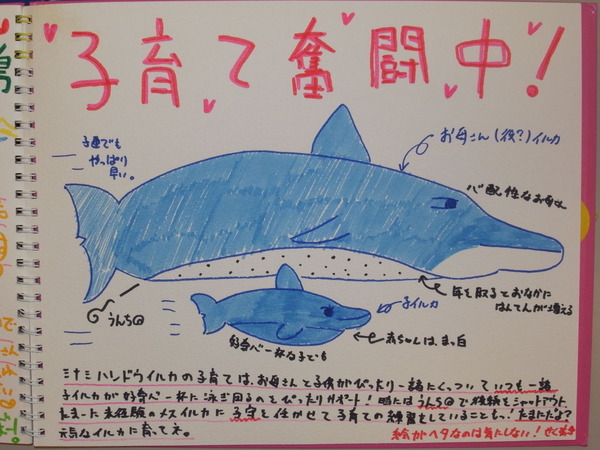 子育て奮闘中!
お母さん(役?)イルカ
子連でも
やっぱり
早い。
心配性なお母さん
年を取るとおなかに
はんてんが増える
うんち@
子イルカ
赤ちゃんは、まっ白
好奇心一杯な子ども
ミナミハンドウイルカの子育ては、お母さんと子供がぴったり一緒にくっついていつも一緒
子イルカが好奇心一杯に泳ぎ回るのをぴったりサポート!時にはうんち@で視線をシャットアウト、
たまーに未経験のメスイルカに子守を任かせて子育ての練習をしていることも、!たまにだよ?
元気なイルカに育ってネ。
絵がヘタなのは気にしない!